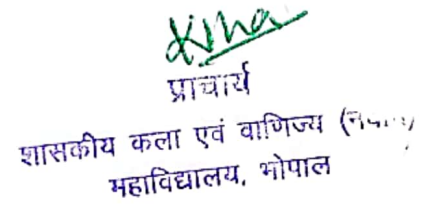 प्राचार्य
शासकीय कला एवं वाणिज्य
महाविद्यालय, भोपाल